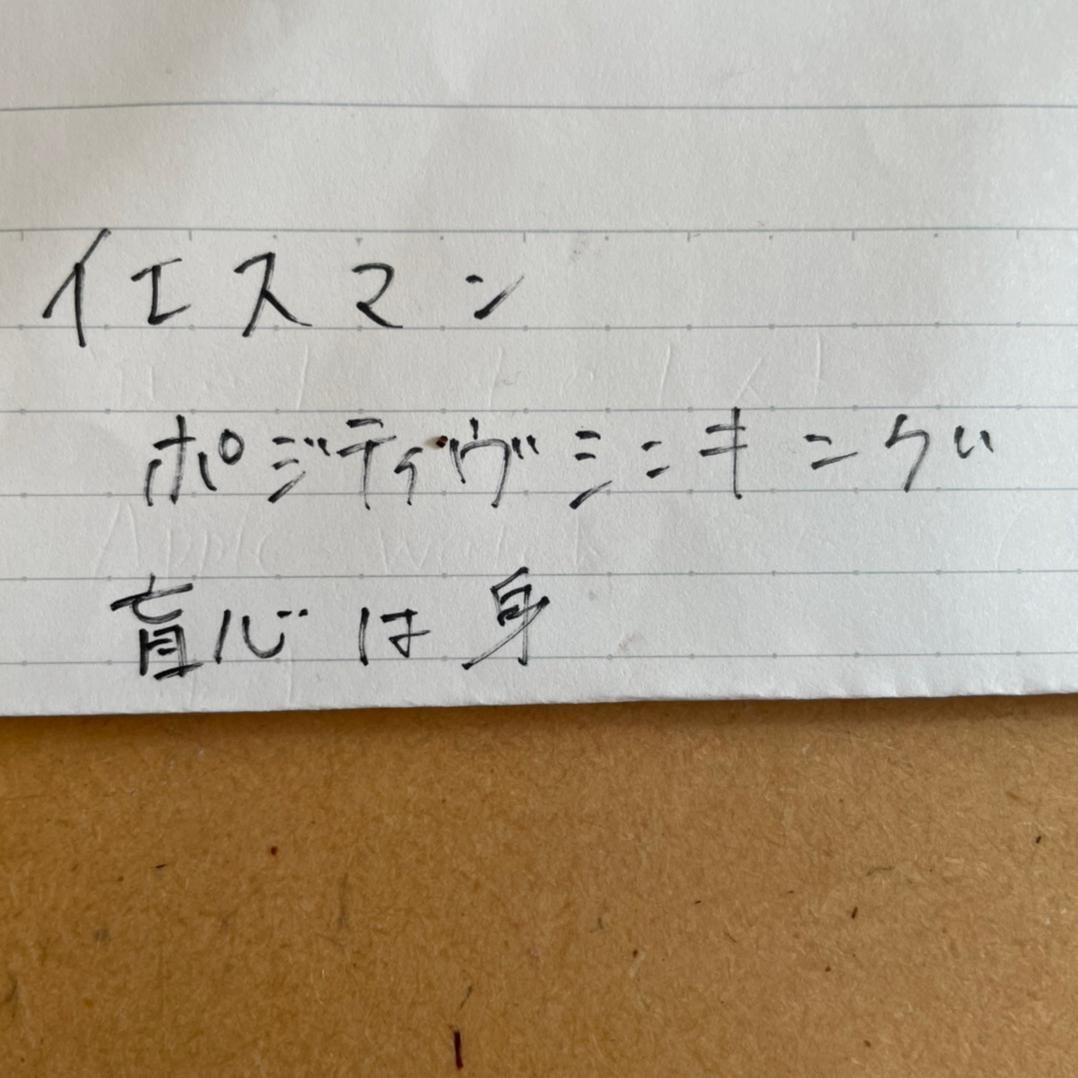 イエスマン
ポジティヴシンキング
盲心は身